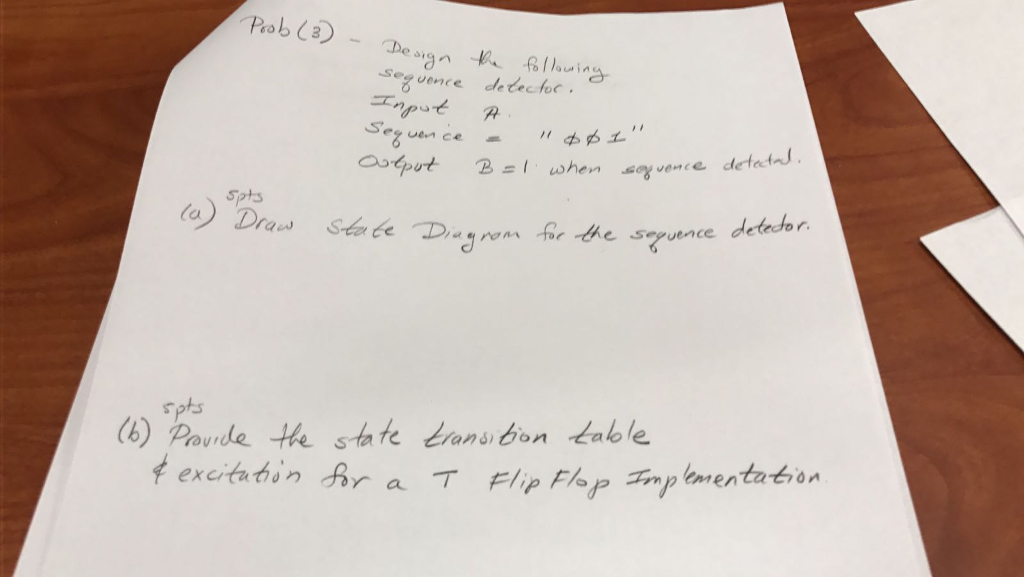 Prob (3) - Design the following
sequence detector.
Input A.
Sequence = "φφ1"
Output B = 1 when sequence detected.
5pts
(a) Draw State Diagram for the sequence detector.
5pts
(b) Provide the state transition table
& excitation for a T Flip Flop Implementation.